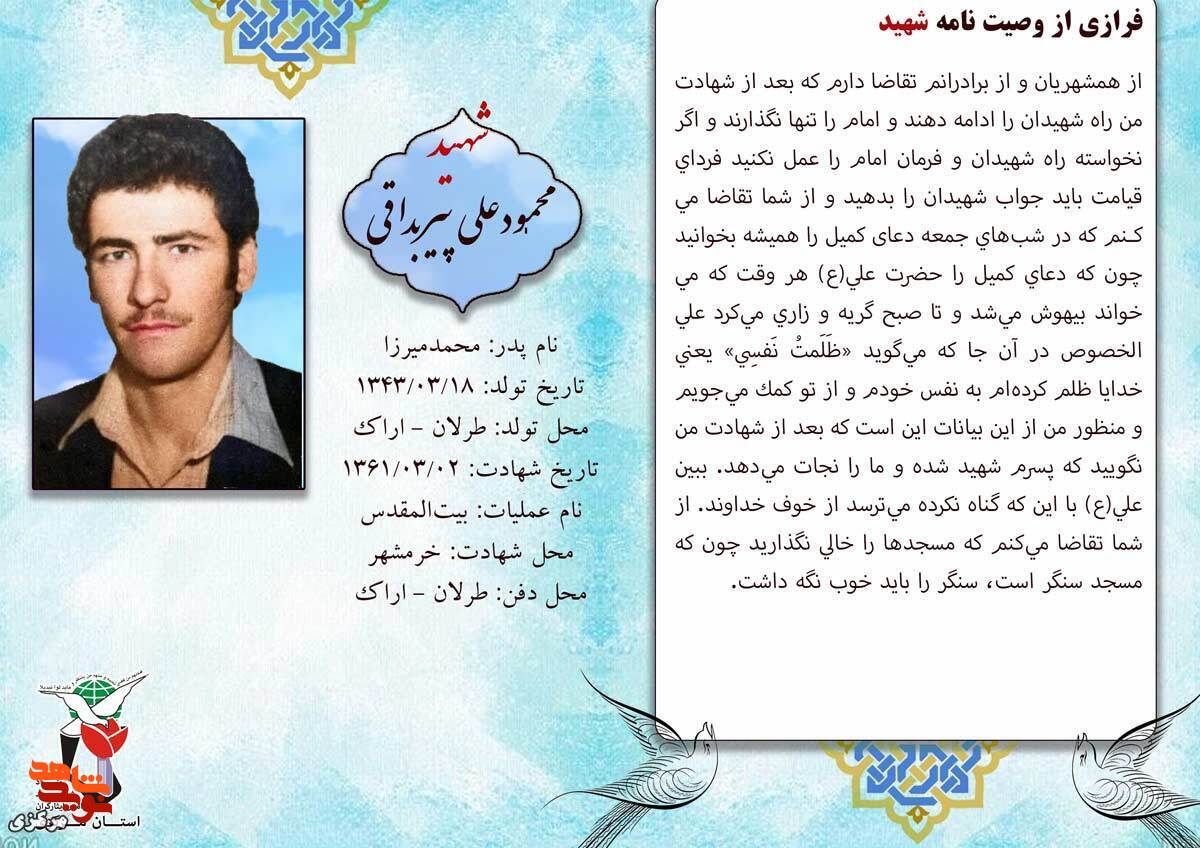 فرازی از وصیت نامه شهید
از همشهریان و از برادرانم تقاضا دارم که بعد از شهادت
من راه شهیدان را ادامه دهند و امام را تنها نگذارند و اگر
نخواسته راه شهیدان و فرمان امام را عمل نکنید فردای
قیامت باید جواب شهیدان را بدهید و از شما تقاضا مي
کـنم که در شب‌هاي جمعه دعای کمیل را همیشه بخوانید
چون که دعاي کمیل را حضرت علي(ع) هر وقت که مي
خواند بیهوش مي‌شد و تا صبح گریه و زاري مي‌کرد علي
الخصوص در آن جا که مي‌گوید «ظَلَمتُ نَفسِي» یعني
خدایا ظلم کرده‌ام به نفس خودم و از تو كمك مي‌جویم
و منظور من از این بیانات این است که بعد از شهادت من
نگویید که پسرم شهید شده و ما را نجات مي‌دهد. ببین
علي(ع) با این که گناه نکرده مي‌ترسد از خوف خداوند. از
شما تقاضا مي‌کنم که مسجدها را خالي نگذارید چون که
مسجد سنگر است، سنگر را باید خوب نگه داشت.
شهید
محمودعلی پیربداقی
نام پدر: محمدمیرزا
تاریخ تولد: ۱۳۴۳/۰۳/۱۸
محل تولد: طرلان - اراک
تاریخ شهادت: ۱۳۶۱/۰۳/۰۲
نام عملیات: بیت‌المقدس
محل شهادت: خرمشهر
محل دفن: طرلان - اراک
نوید شاهد
استان مرکزی